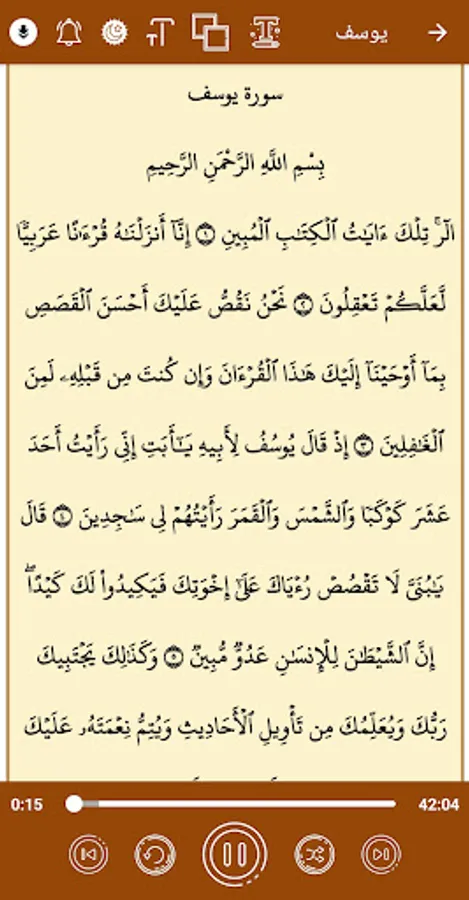 يوسف
سورة يوسف
بِسْمِ اللَّهِ الرَّحْمَنِ الرَّحِيمِ
الٓرۚ تِلْكَ ءَايَٰتُ ٱلْكِتَٰبِ ٱلْمُبِينِ ١ إِنَّآ أَنزَلْنَٰهُ قُرْءَٰنًا عَرَبِيًّا
لَّعَلَّكُمْ تَعْقِلُونَ ٢ نَحْنُ نَقُصُّ عَلَيْكَ أَحْسَنَ ٱلْقَصَصِ
بِمَآ أَوْحَيْنَآ إِلَيْكَ هَٰذَا ٱلْقُرْءَانَ وَإِن كُنتَ مِن قَبْلِهِۦ لَمِنَ
ٱلْغَٰفِلِينَ ٣ إِذْ قَالَ يُوسُفُ لِأَبِيهِ يَٰٓأَبَتِ إِنِّى رَأَيْتُ أَحَدَ
عَشَرَ كَوْكَبًا وَٱلشَّمْسَ وَٱلْقَمَرَ رَأَيْتُهُمْ لِى سَٰجِدِينَ ٤ قَالَ
يَٰبُنَىَّ لَا تَقْصُصْ رُءْيَاكَ عَلَىٰٓ إِخْوَتِكَ فَيَكِيدُوا۟ لَكَ كَيْدًاۖ
إِنَّ ٱلشَّيْطَٰنَ لِلْإِنسَٰنِ عَدُوٌّ مُّبِينٌ ٥ وَكَذَٰلِكَ يَجْتَبِيكَ
رَبُّكَ وَيُعَلِّمُكَ مِن تَأْوِيلِ ٱلْأَحَادِيثِ وَيُتِمُّ نِعْمَتَهُۥ عَلَيْكَ
0:15 42:04